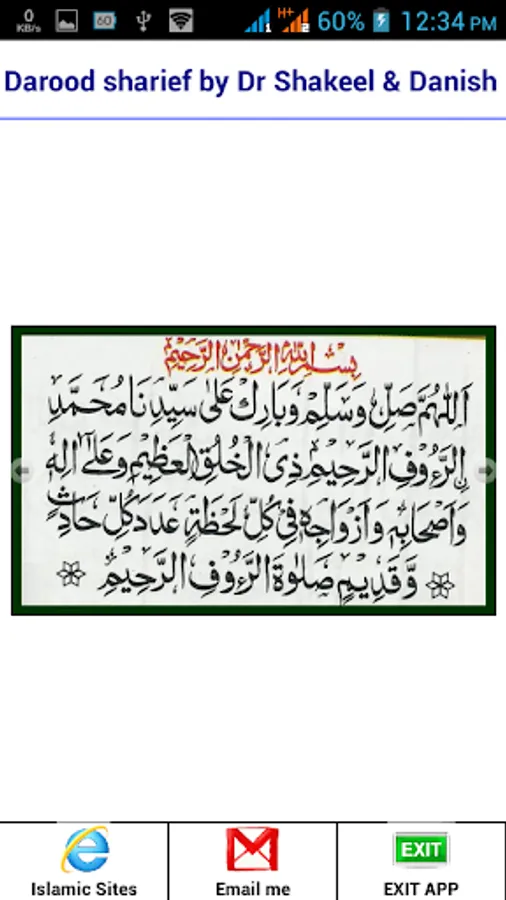 0 KB/s 60 H+ 1 2 60% 12:34 PM
Darood sharief by Dr Shakeel & Danish
بِسْمِ اللّٰهِ الرَّحْمٰنِ الرَّحِيْمِ
اَللّٰهُمَّ صَلِّ وَسَلِّمْ وَبَارِكْ عَلٰى سَيِّدِنَا مُحَمَّدِ
نِ الرَّءُوْفِ الرَّحِيْمِ ذِى الْخُلُقِ الْعَظِيْمِ وَعَلٰٓى اٰلِهٖ
وَاَصْحَابِهٖ وَاَزْوَاجِهٖ فِىْ كُلِّ لَحْظَةٍ عَدَدَ كُلِّ حَادِثٍ
وَّقَدِيْمٍ صَلٰوةَ الرَّءُوْفِ الرَّحِيْمِ
Islamic Sites
Email me
EXIT
EXIT APP